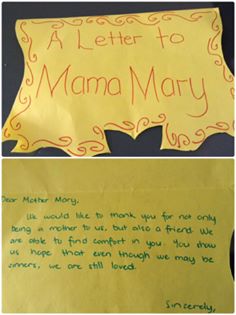 A Letter to
Mama Mary
Dear Mother Mary,
We would like to thank you for not only
being a mother to us, but also a friend. We
are able to find comfort in you. You show
us hope that even though we may be
sinners, we are still loved.
Sincerely,